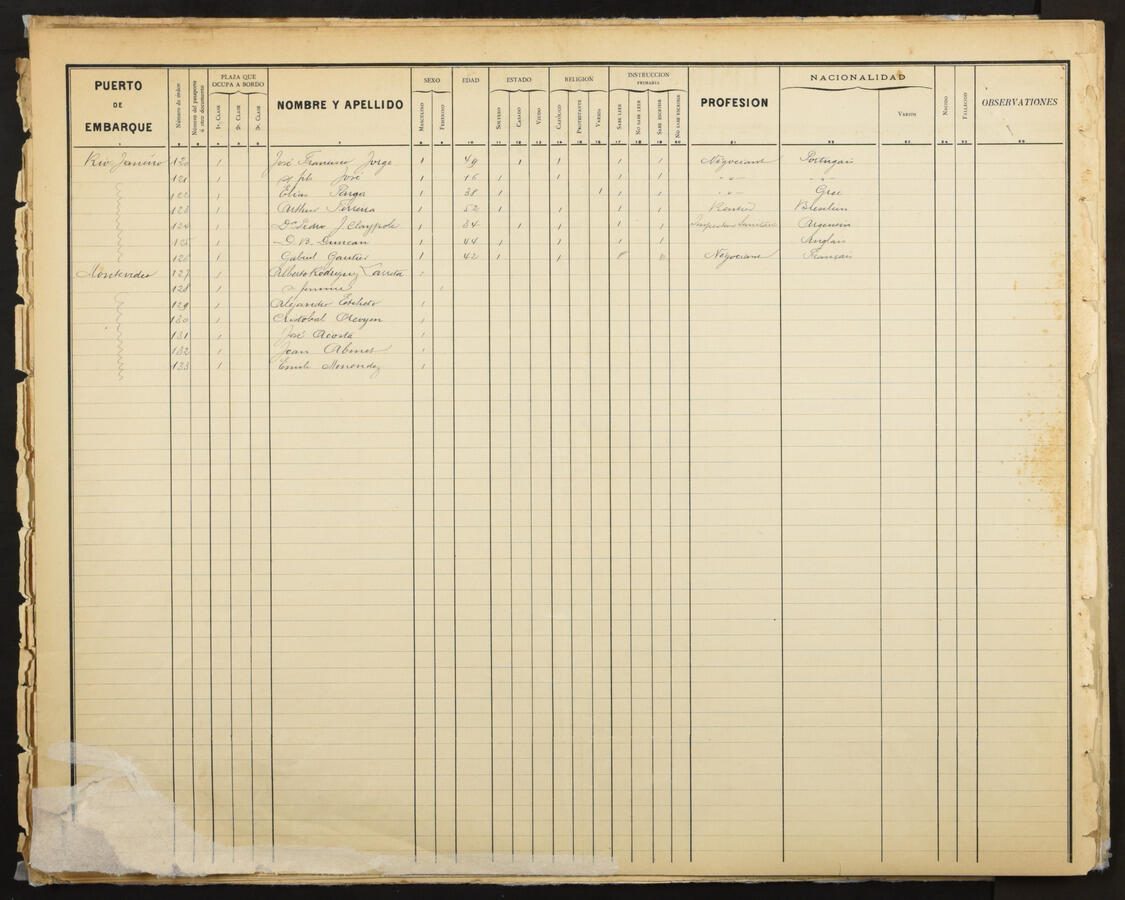 PUERTO DE EMBARQUE
Número de órden
Número del pasaporte ó otro documento
PLAZA QUE OCUPA A BORDO
1ª CLASE
2ª CLASE
3ª CLASE
NOMBRE Y APELLIDO
SEXO
MASCULINO
FEMENINO
EDAD
ESTADO
SOLTERO
CASADO
VIUDO
RELIGION
CATÓLICO
PROTESTANTE
VARIOS
INSTRUCCION PRIMARIA
SABE LEER
NO SABE LEER
SABE ESCRIBIR
NO SABE ESCRIBIR
PROFESION
NACIONALIDAD
VARIOS
NACIDO
FALLECIDO
OBSERVATIONES
Rio Janeiro 120 1 José Francisco Jorge 1 49 1 1 1 1 Négociant Portugais
121 1 fils José 1 16 1 1 1 1 - " - - " -
122 1 Elias 1 38 1 1 1 1 - " - Grec
123 1 Arthur Ferrera 1 52 1 1 1 1 Rentier Brésilien
124 1 Dr Pedro J. Claypole 1 34 1 1 1 1 Inspecteur Sanitaire Argentin
125 1 D. B. Duncan 1 44 1 1 1 1 Anglais
126 1 Gabriel Gautier 1 42 1 1 1 1 Négociant Français
Montevideo 127 1 Alberto Rodriguez Larreta 1
128 1 " femme 1
129 1 Alejandro 1
130 1 Cristobal 1
131 1 José Acosta 1
132 1 Jean 1
133 1 Emile Menendez 1